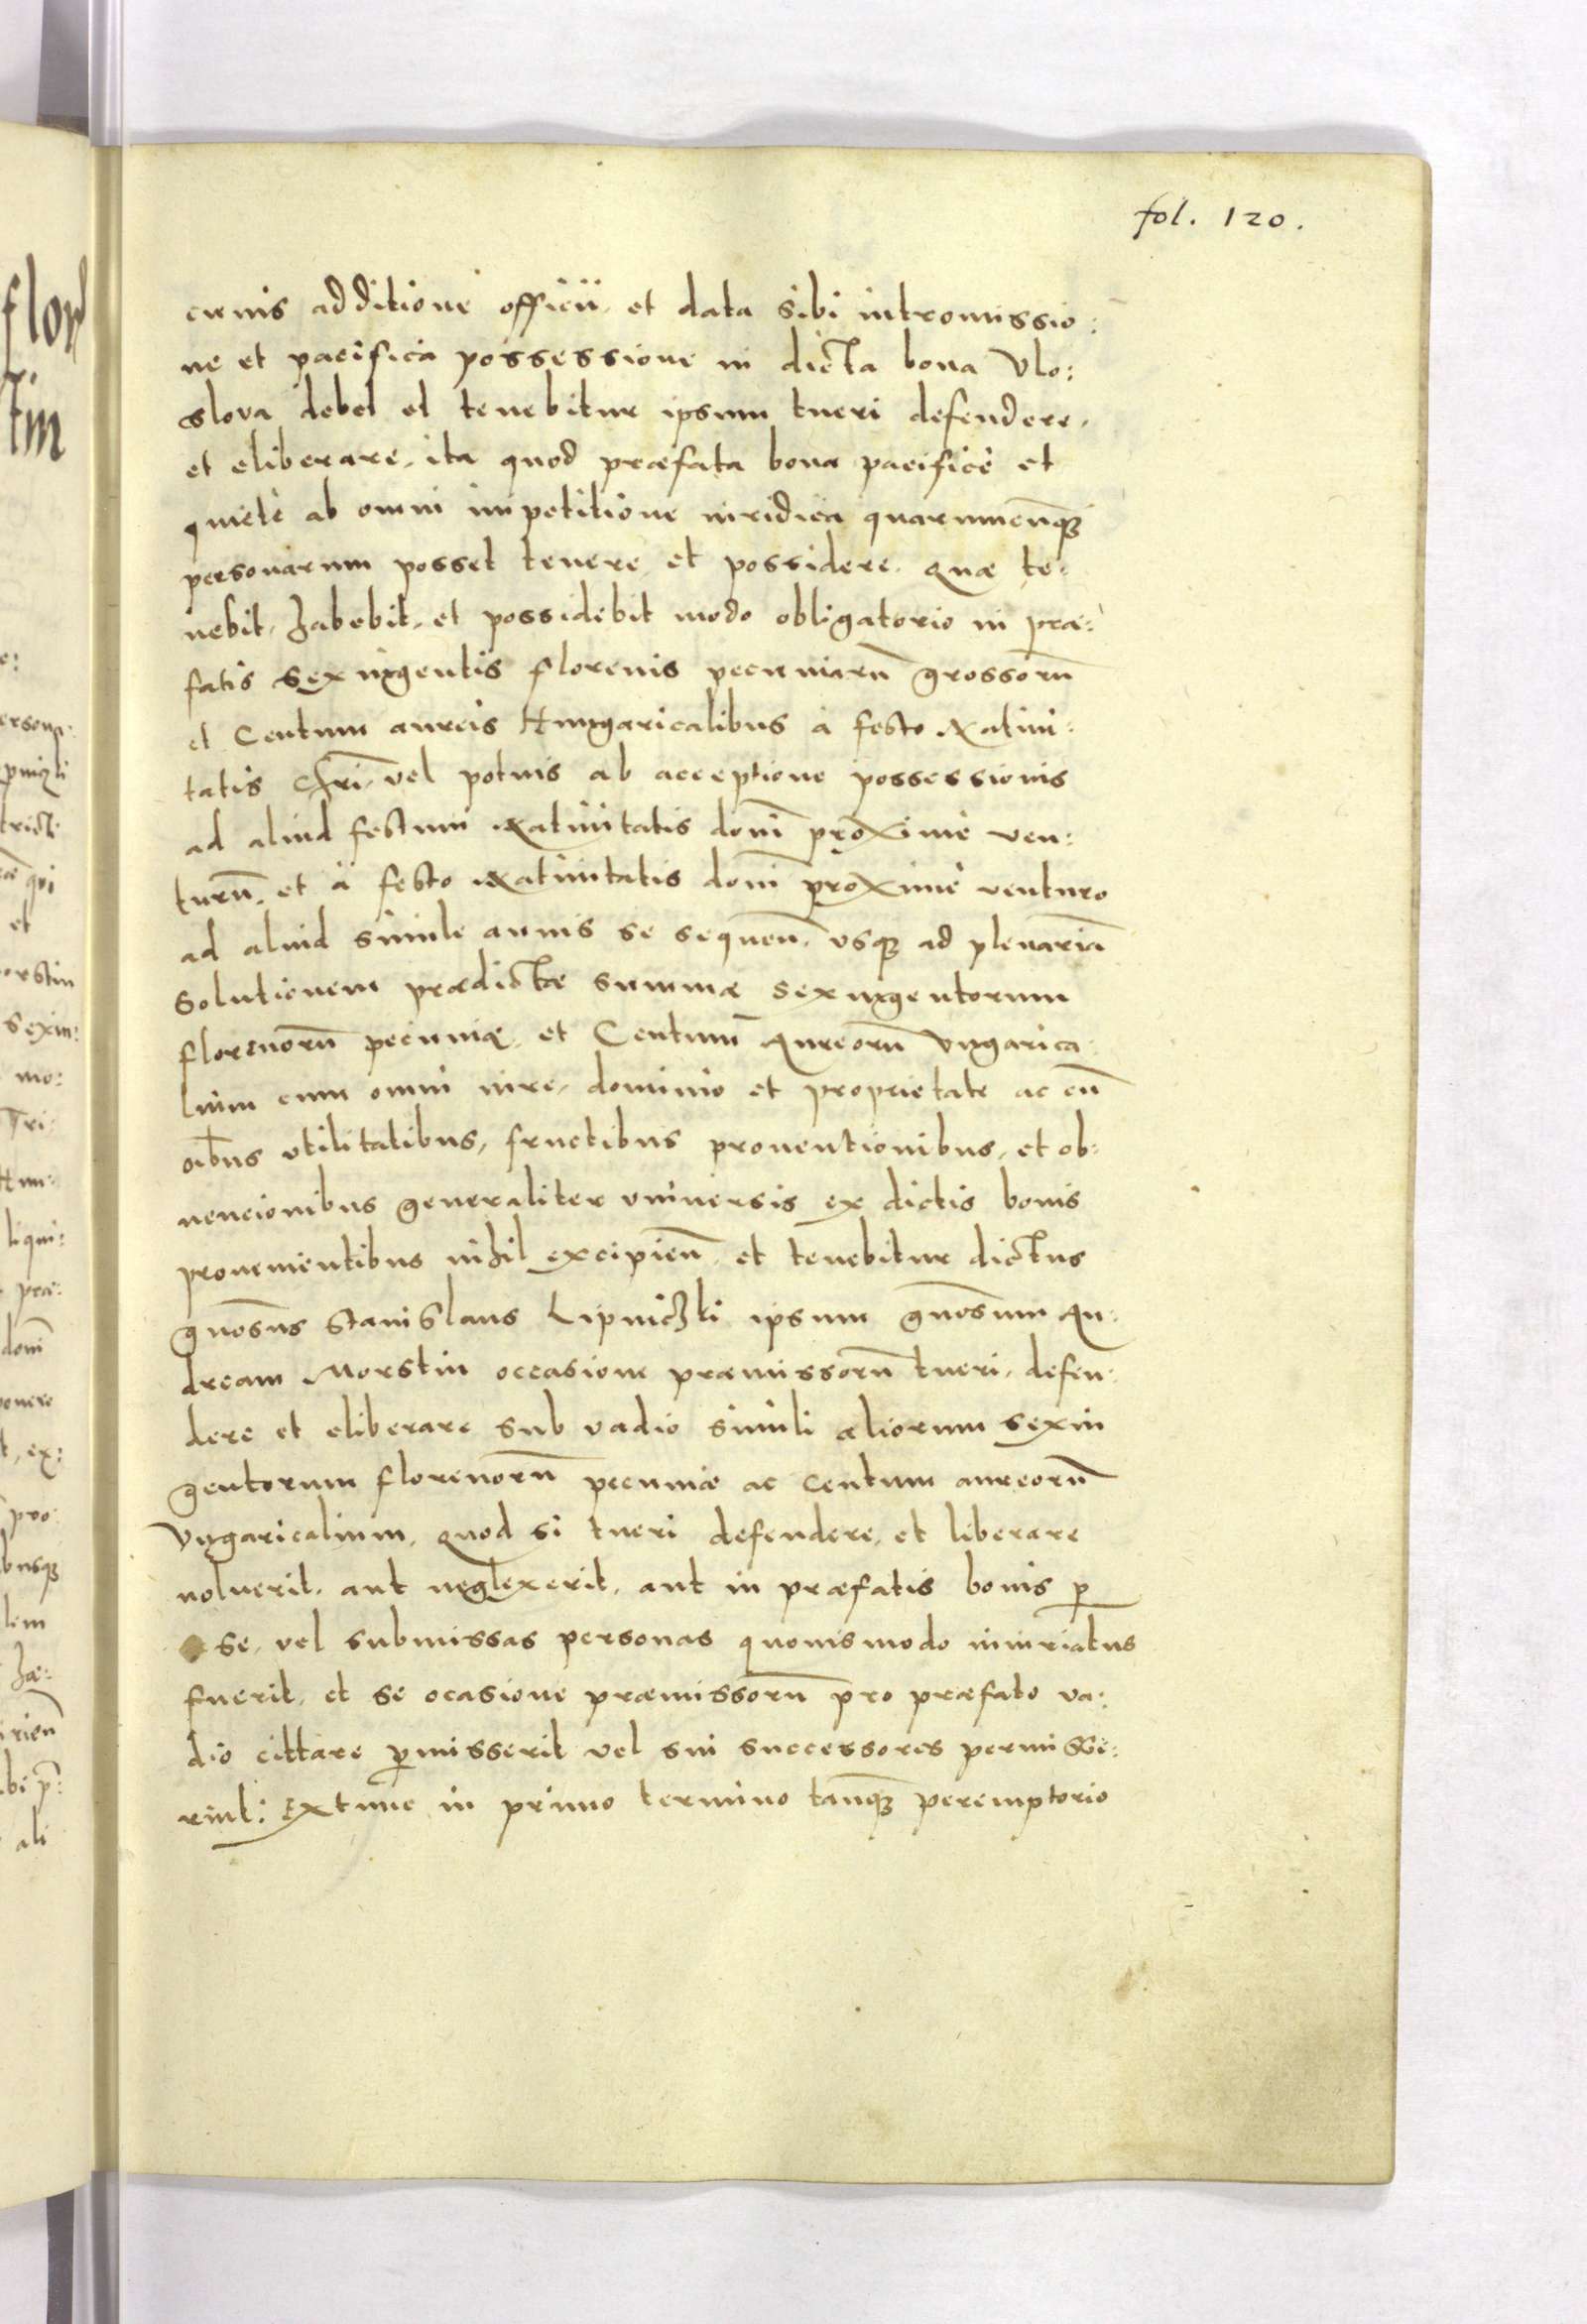 fol. 120.
cuius additione officii, et data sibi intromissio:
ne et pacifica possessione in dicta bona Vlo:
slova debet et tenebitur ipsum tueri defendere,
et eliberare, ita quod præfata bona pacificè et
quietè ab omni impetitione iuridica quarumcunqꝫ
personarum posset tenere et possidere, quæ te:
nebit, habebit, et possidebit modo obligatorio in præ:
fatis sexingentis florenis pecuniarū grossorū
et Centum aureis Hungaricalibus à festo Natiui:
tatis Chri, vel potius ab acceptione possessionis
ad aliud festum Natiuitatis domī proximè ven:
turū, et à festo Natiuitatis domī proximè venturo
ad aliud simile annis se sequeñ, vsqꝫ ad plenariā
solutionem prædictæ summæ sexingentorum
florenorū pecuniæ, et Centum Aureorū Vngarica
lium cum omni iure, dominio et proprietate ac cū
oibus vtilitatibus, fructibus prouentionibus, et ob:
uencionibus generaliter vniuersis ex dictis bonis
prouenientibus nihil excipieñ, et tenebitur dictus
gnosus Stanislaus Lipniczki ipsum gnosum An:
dream Morstin occasione præmissorū tueri, defen:
dere et eliberare sub vadio simili aliorum sexin
gentorum florenorū pecuniæ ac centum aureorū
Vngaricalium, quod si tueri defendere, et liberare
noluerit, aut neglexerit, aut in præfatis bonis ꝑ
se, vel submissas personas quouismodo iniuriatus
fuerit, et se ocasione præmissorū pro præfato va:
dio cittare ꝑmisserit vel sui successores permisse:
rint: Extunc in primo termino tanqꝫ peremptorio